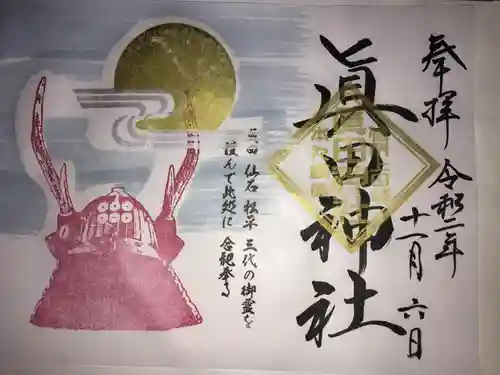 奉拝 令和二年
十一月六日
眞田神社
真田 仙石 松平 三代の御霊を
謹んで此処に 合祀奉る